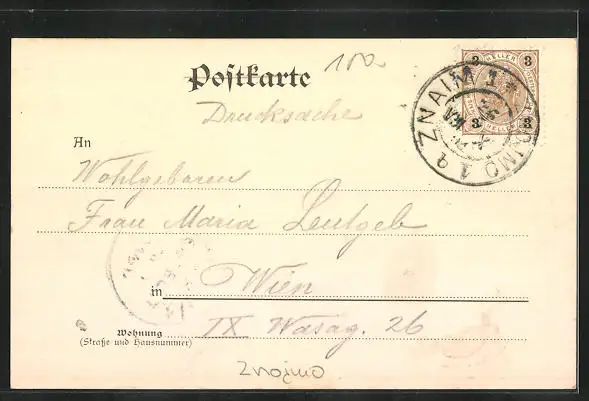 100
Postkarte
3 HELLER 3
3 HELLER 3
ZNAIM 1 * ZNOJMO 1
Drucksache
An
Wohlgeboren
Frau Maria Leutgeb
in Wien
Wohnung IX Wasag. 26
(Straße und Hausnummer)
Znojmo